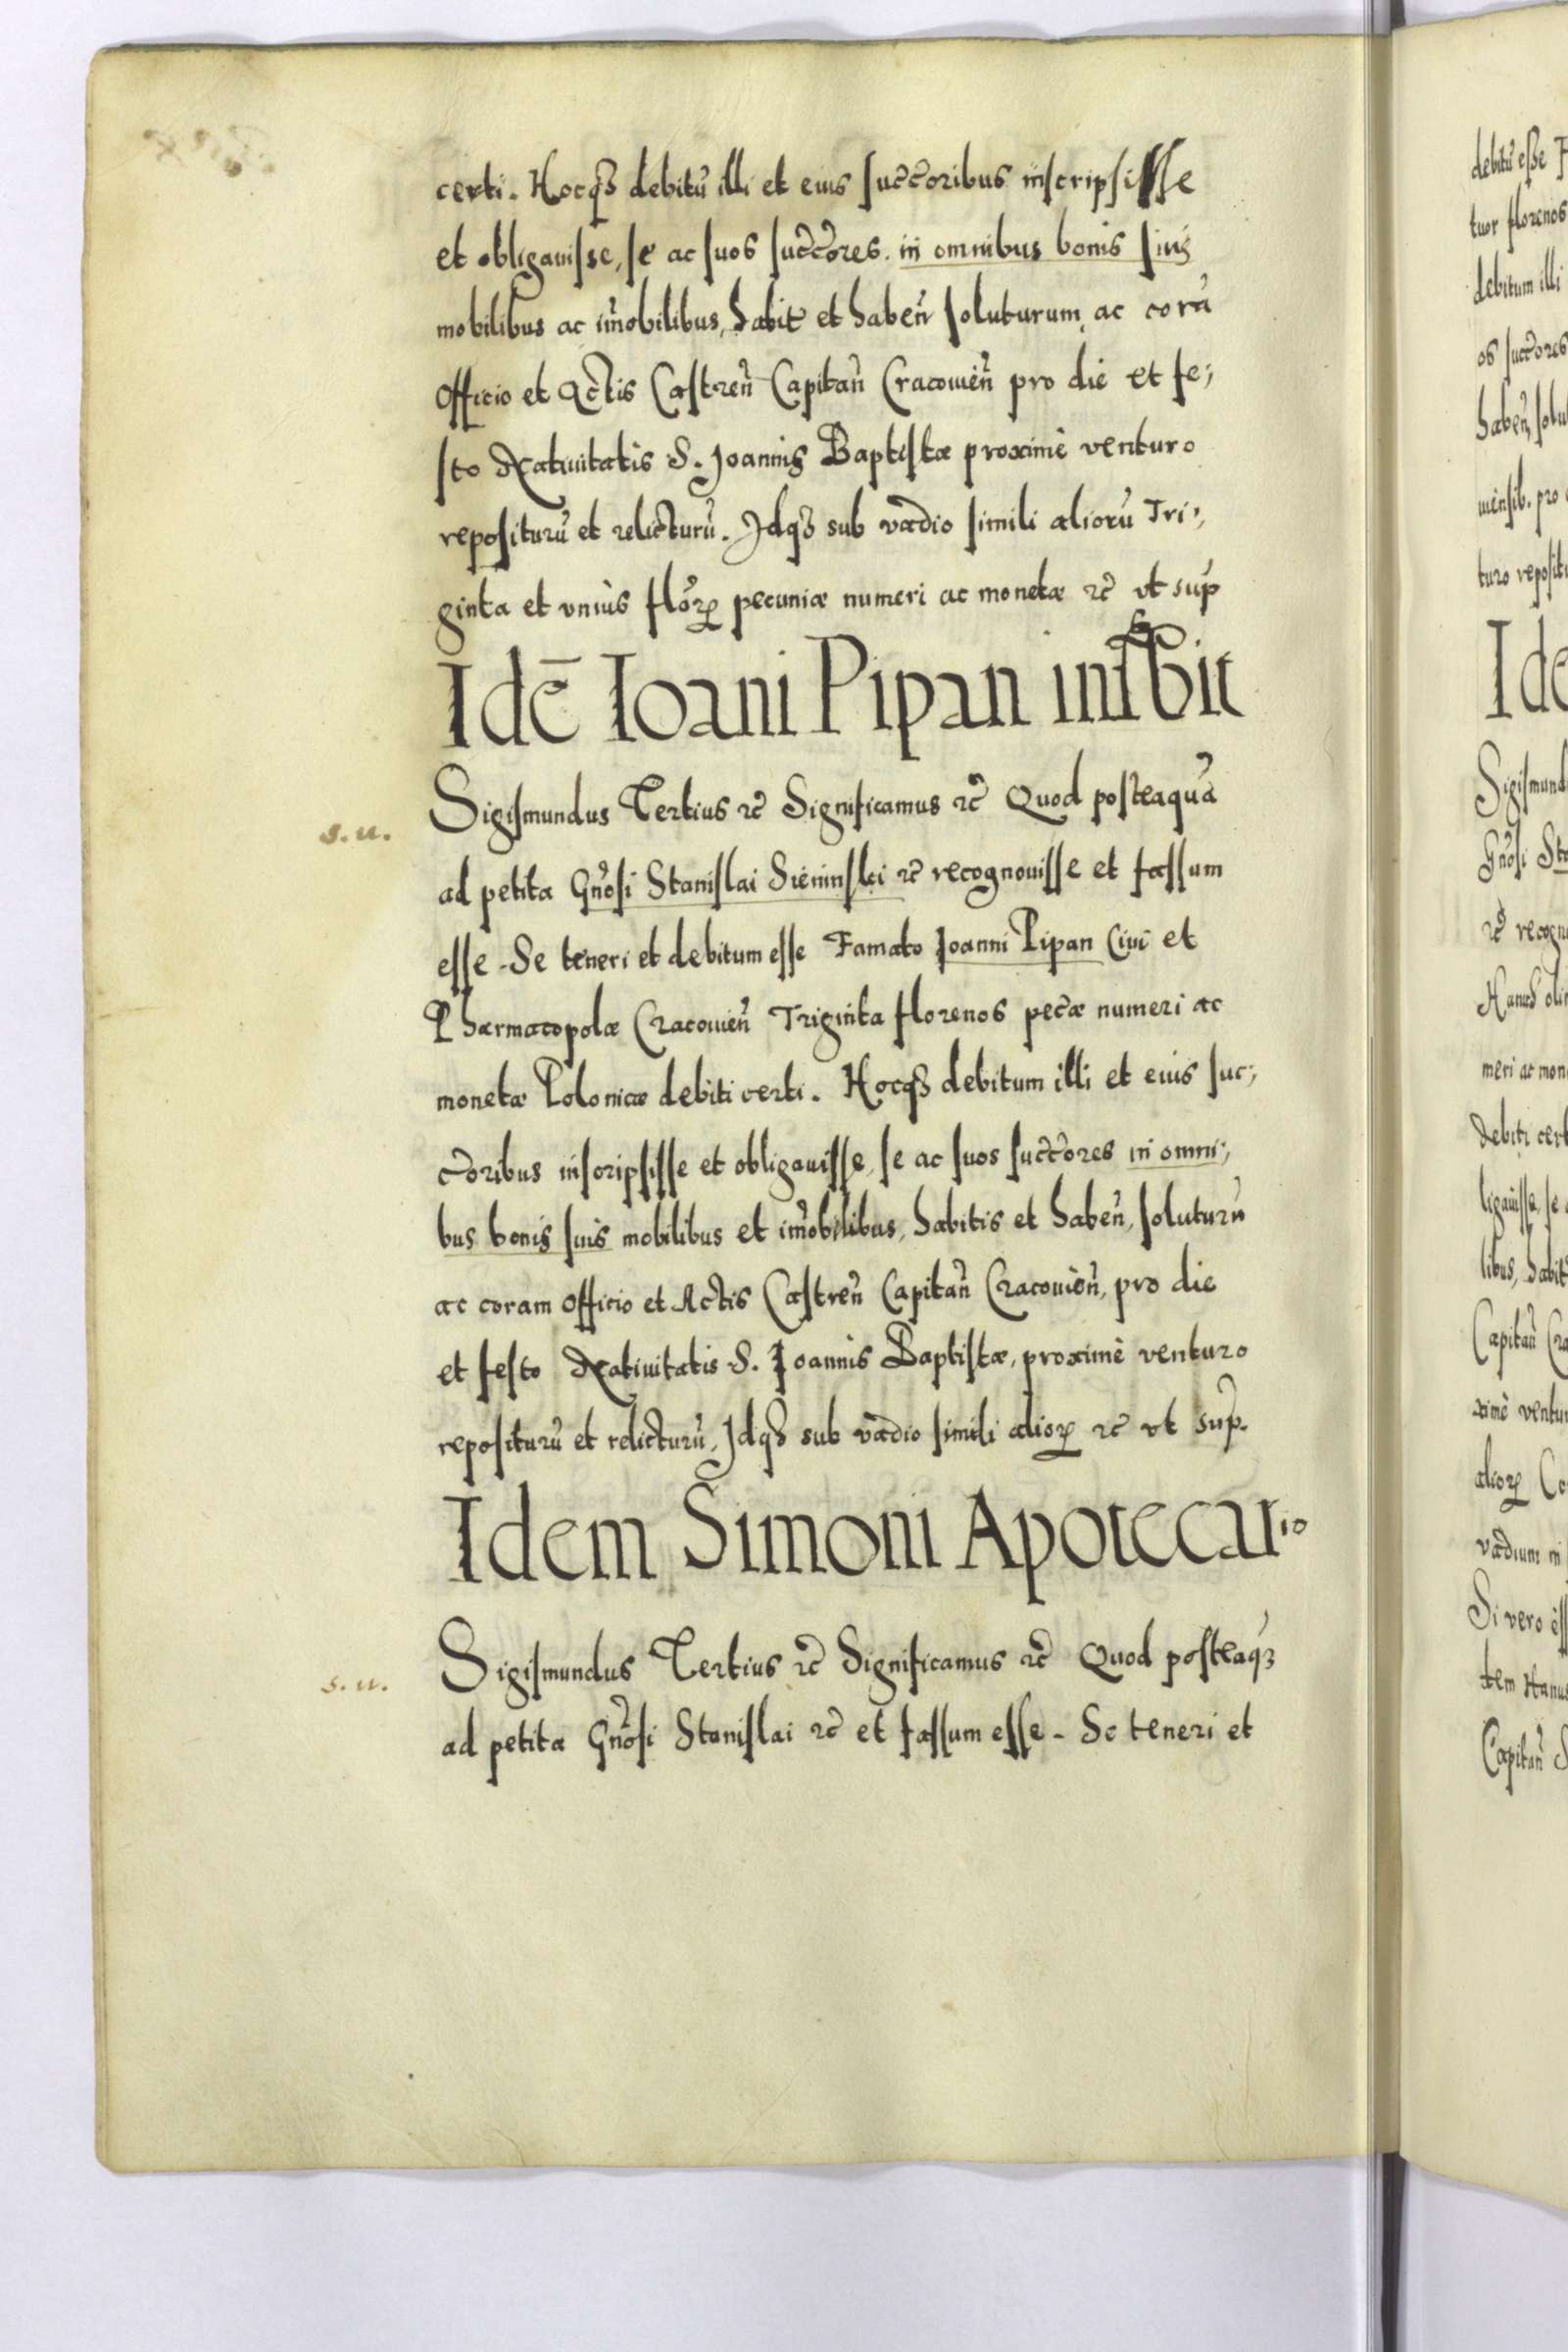 certi. Hocq3 debitū illi et eius succ̄oribus inscripsisse
et obligauisse, se ac suos succ̄ores. in omnibus bonis suis
mobilibus ac im̄obilibus, habit̄ et haben̄ soluturum ac corā
Officio et Actis Castren̄ Capitan̄ Cracouien̄ pro die et fe;
sto Natiuitatis S. Joannis Baptistæ proximè venturo
repositurū et relicturū. Jdq3 sub vadio simili aliorū Tri;
ginta et vnius flōrꝝ pecuniæ numeri ac monetæ ꝛc̄ vt sup
Idē Ioani Pipan inscbit
Sigismundus Tertius ꝛc̄ Significamus ꝛc̄ Quod posteaquā
s.u.
ad petita Gn̄osi Stanislai Sieninski ꝛc̄ recognouisse et fassum
esse - Se teneri et debitum esse Famato Joanni Pipan Ciui et
Pharmacopolæ Cracouien̄ Triginta florenos pecc̄æ numeri ac
monetæ Polonicæ debiti certi. Hocq3 debitum illi et eius suc;
c̄oribus inscripsisse et obligauisse, se ac suos succ̄ores in omni;
bus bonis suis mobilibus et im̄obilibus, habitis et haben̄, soluturū
ac coram Officio et Actis Castren̄ Capitan̄ Cracouien̄, pro die
et festo Natiuitatis S. Joannis Baptistæ, proximè venturo
repositurū et relicturū, Jdq3 sub vadio simili aliorꝝ ꝛc̄ vt sup.
Idem Simoni Apotecario
Sigismundus Tertius ꝛc̄ Significamus ꝛc̄ Quod posteaq3
s.u.
ad petita Gn̄osi Stanislai ꝛc̄ et fassum esse - Se teneri et
debitū esse
tuor florenos
debitum illi
os succ̄ores
haben̄,
mensib. pro
turo
Ide
Sigismund
Gn̄osi
ꝛc̄
Hanus
meri ac
debiti
ligauisse, se
libus,
Capitan̄
ximè
aliorꝝ
vadium in
Si vero
tem Hanus
Capitan̄